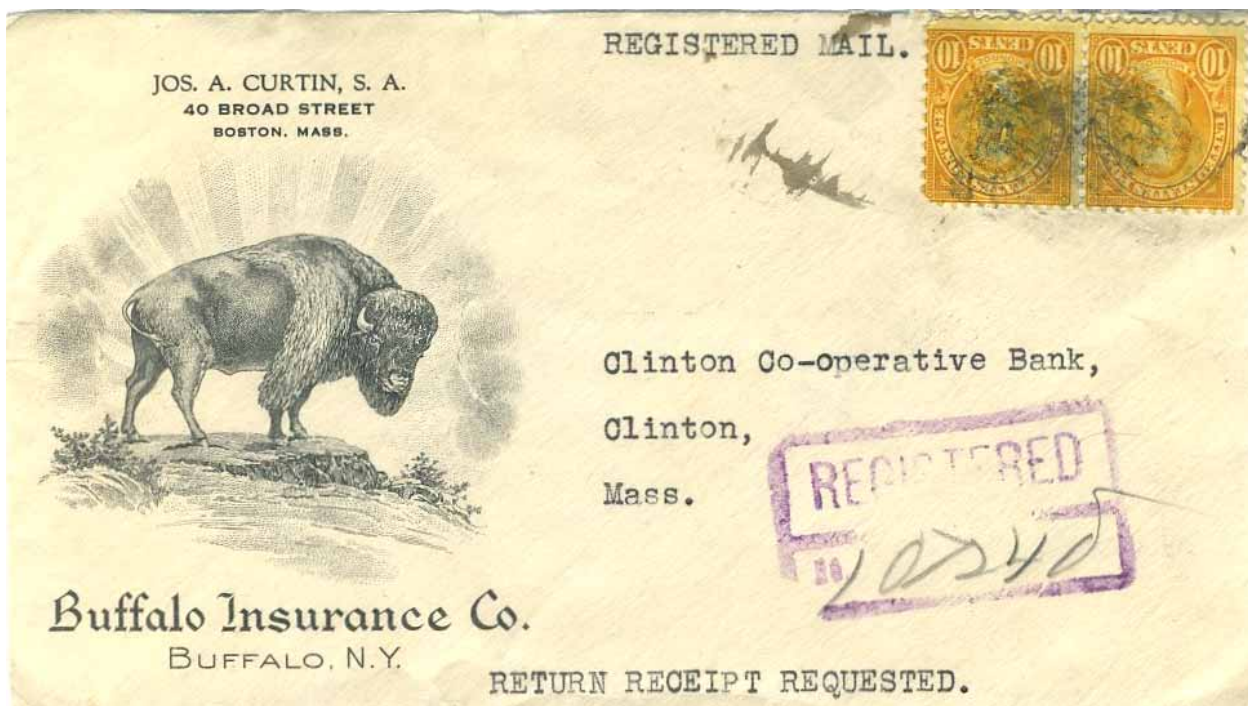 REGISTERED MAIL.
JOS. A. CURTIN, S. A.
40 BROAD STREET
BOSTON, MASS.
10 CENTS 10
10 CENTS 10
Clinton Co-operative Bank,
Clinton,
Mass.
REGISTERED
No
Buffalo Insurance Co.
BUFFALO, N.Y.
RETURN RECEIPT REQUESTED.